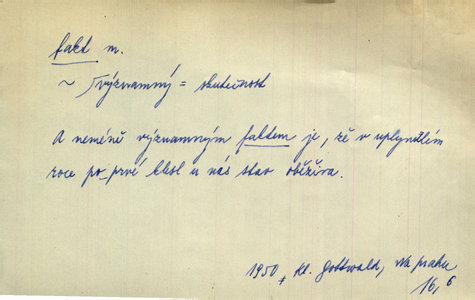 fakt m.
~ významný = skutečnost
A neméně významným faktem je, že v uplynulém
roce po prvé klesl u nás stav oběživa.
1950, Kl. Gottwald, Na prahu
16, 6